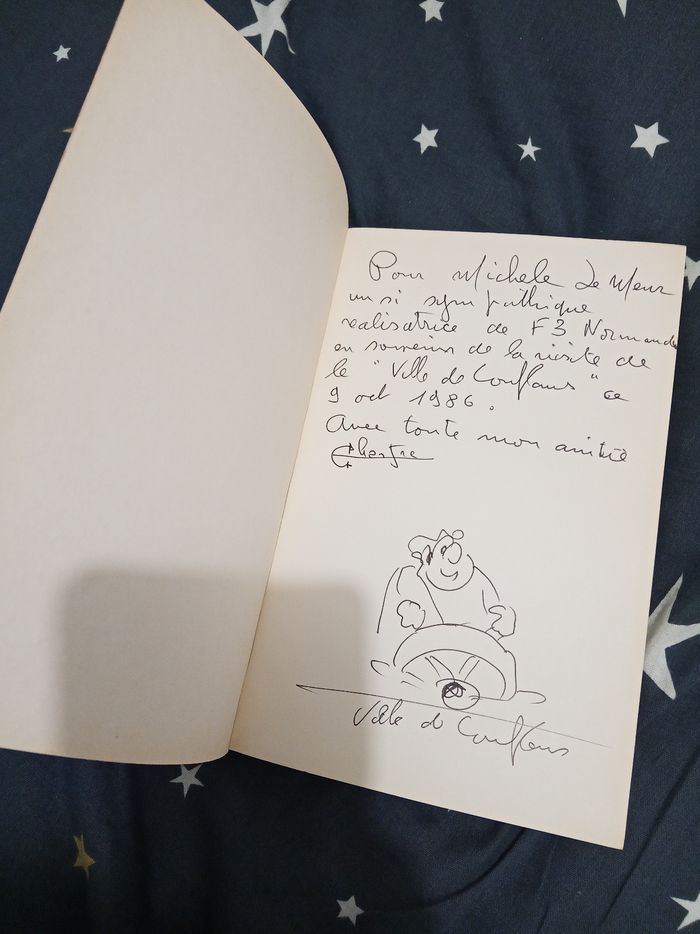 Pour Michele Le Meur
un si sympathique
realisatrice de F3 Normandie
en souvenir de la visite de
le "Ville de Conflans" ce
9 oct 1986.
Avec toute mon amitié
Ville de Conflans